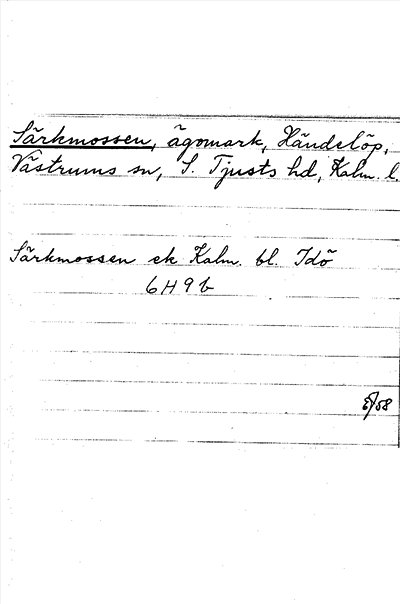 Särkmossen, ägomark, Händelöp,
Västrums sn, S. Tjusts hd, Kalm. l.
Särkmossen ek Kalm. bl. Idö
6H9b